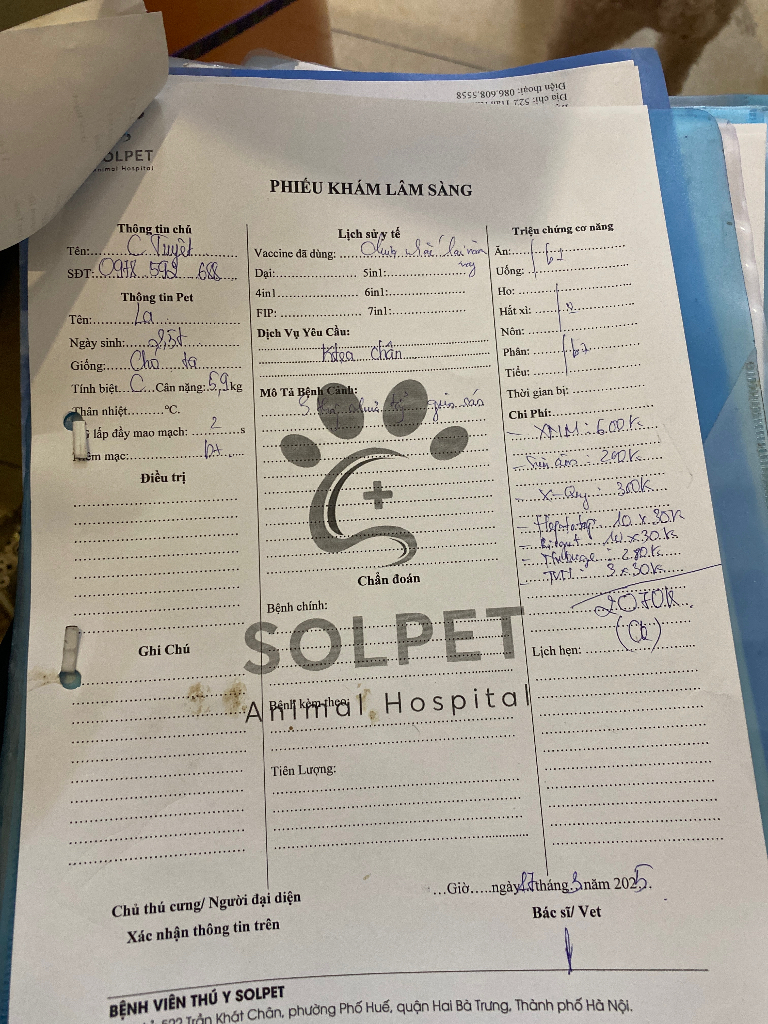 Điện thoại: 086.608.5558
Địa chỉ: 522
SOLPET
Animal Hospital
PHIẾU KHÁM LÂM SÀNG
Thông tin chủ
Tên: C Tuyết
SĐT: 0978 592 688
Thông tin Pet
Tên: La
Ngày sinh: 2,5t
Giống: Chó ta
Tính biệt C Cân nặng: 5,9 kg
Thân nhiệt °C.
lấp đầy mao mạch: 2 s
mạc: bt
Điều trị
Ghi Chú
Lịch sử y tế
Vaccine đã dùng:
Dại: 5in1:
4in1 6in1:
FIP: 7in1:
Dịch Vụ Yêu Cầu:
chân
Mô Tả Bệnh Cảnh:
Chẩn đoán
Bệnh chính:
SOLPET
Animal Hospital
Bệnh kèm theo:
Tiên Lượng:
Triệu chứng cơ năng
Ăn: bt
Uống:
Ho:
Hắt xì:
Nôn:
Phân: bt
Tiểu:
Thời gian bị:
Chi Phí:
- XNM: 600k
- Siêu âm: 200k
- X-Quy: 300k
- 10 x 30k
- 10 x 30k
- 280k
- 3 x 30k
2070k
(Ck)
Lịch hẹn:
Chủ thú cưng/ Người đại diện
Xác nhận thông tin trên
...Giờ.....ngày 17 tháng 3 năm 2025.
Bác sĩ/ Vet
BỆNH VIỆN THÚ Y SOLPET
522 Trần Khát Chân, phường Phố Huế, quận Hai Bà Trưng, Thành phố Hà Nội.